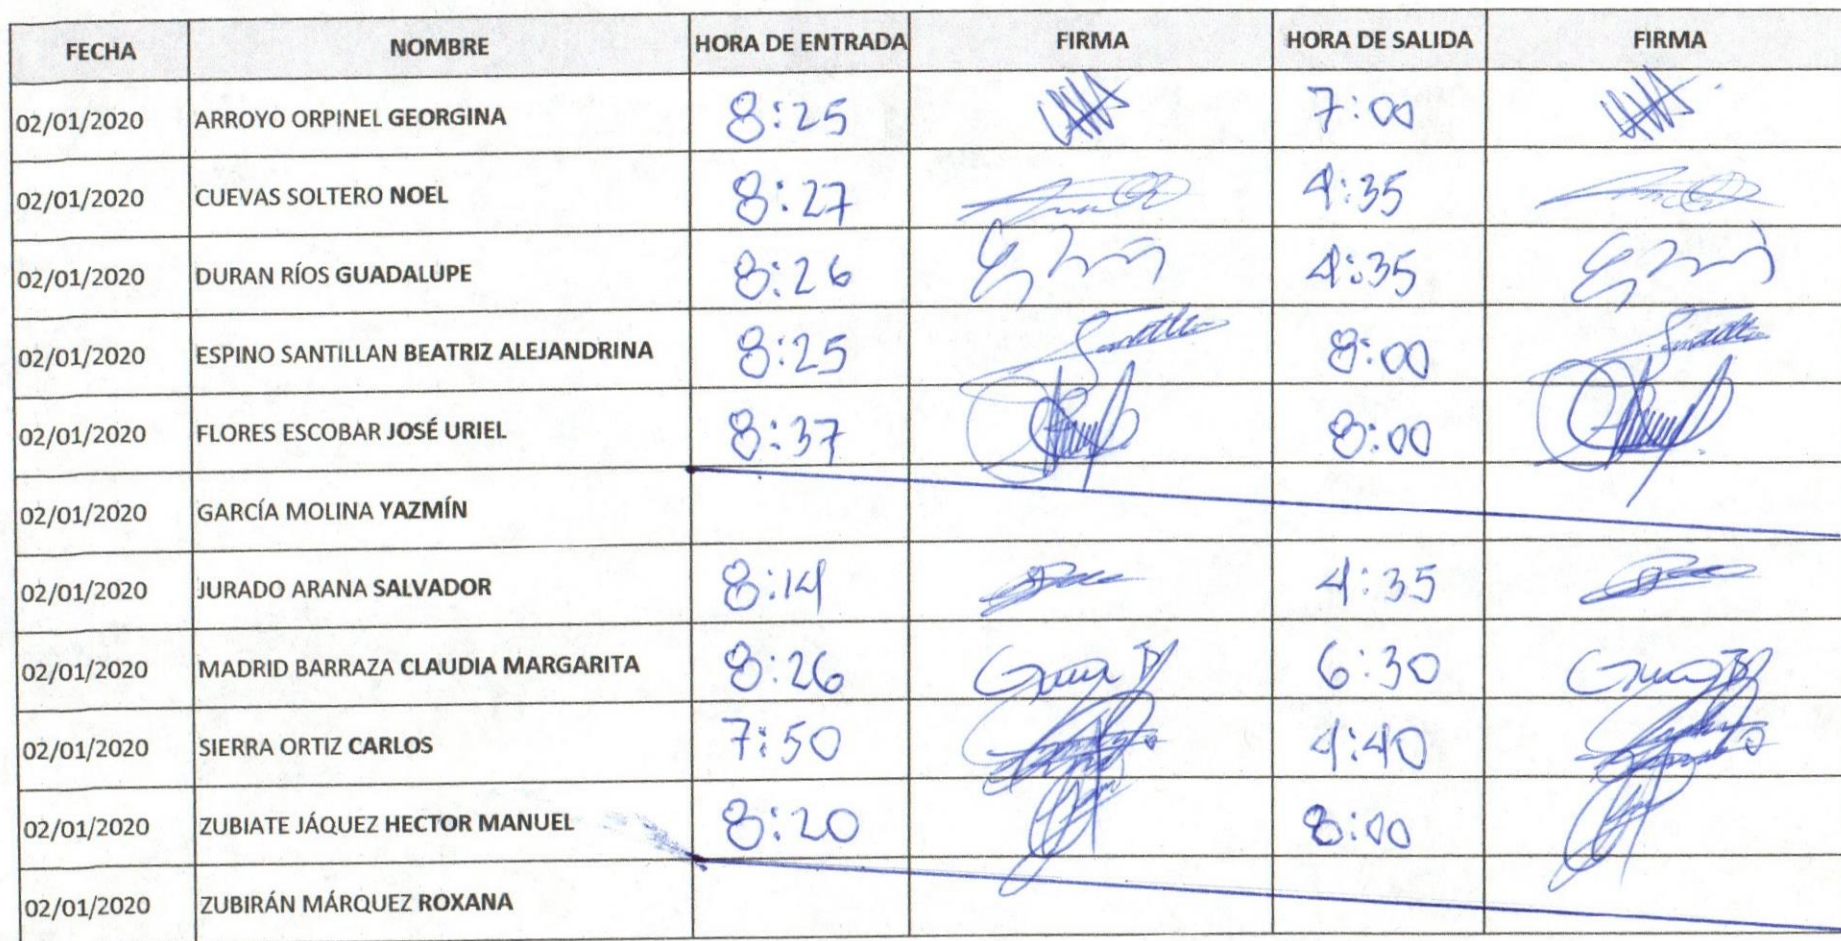 FECHA NOMBRE HORA DE ENTRADA FIRMA HORA DE SALIDA FIRMA
02/01/2020 ARROYO ORPINEL GEORGINA 8:25 7:00
02/01/2020 CUEVAS SOLTERO NOEL 8:27 4:35
02/01/2020 DURAN RÍOS GUADALUPE 8:26 4:35
02/01/2020 ESPINO SANTILLAN BEATRIZ ALEJANDRINA 8:25 8:00
02/01/2020 FLORES ESCOBAR JOSÉ URIEL 8:37 8:00
02/01/2020 GARCÍA MOLINA YAZMÍN
02/01/2020 JURADO ARANA SALVADOR 8:14 4:35
02/01/2020 MADRID BARRAZA CLAUDIA MARGARITA 8:26 6:30
02/01/2020 SIERRA ORTIZ CARLOS 7:50 4:40
02/01/2020 ZUBIATE JÁQUEZ HECTOR MANUEL 8:20 8:00
02/01/2020 ZUBIRÁN MÁRQUEZ ROXANA